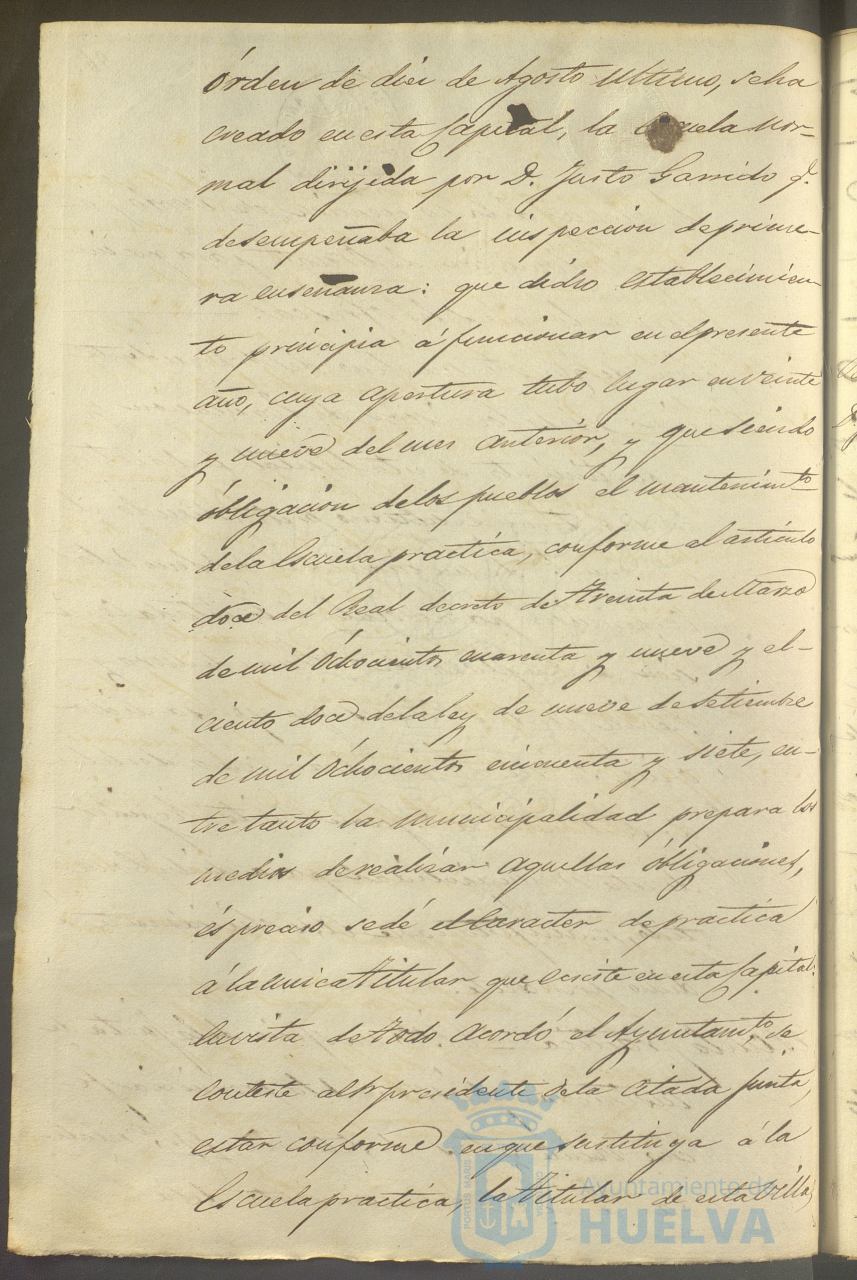 órden de diez de Agosto ultimo, se ha
creado en esta Capital, la escuela nor-
mal dirijida por D. Justo Garrido q.e
desempeñaba la inspeccion de prime-
ra enseñanza: que dicho establecimien-
to principia á funcionar en el presente
año, cuya apertura tubo lugar en veinte
y nueve del mes anteriór, y que siendo
óbligacion de los pueblos el mantenim.to
de la Escuela practica, conforme al articulo
doce del Real decreto de treinta de Marzo
de mil óchocientos cuarenta y nueve y el-
ciento doce de la ley de nueve de Setiembre
de mil óchocientos cincuenta y siete, en-
tre tanto la municipalidad prepara los
medios de realizar aquellas óbligaciones,
és preciso se dé el Caracter de practica
á la unica titular que ecsiste en esta Capital.
En vista de todo acordó el Ayuntam.to se
conteste al Sr presidente de la citada Junta,
estar conforme en que sustituya á la
Escuela practica, la titular de esta Villa,
PORTUS MARIS
Ayuntamiento de
HUELVA